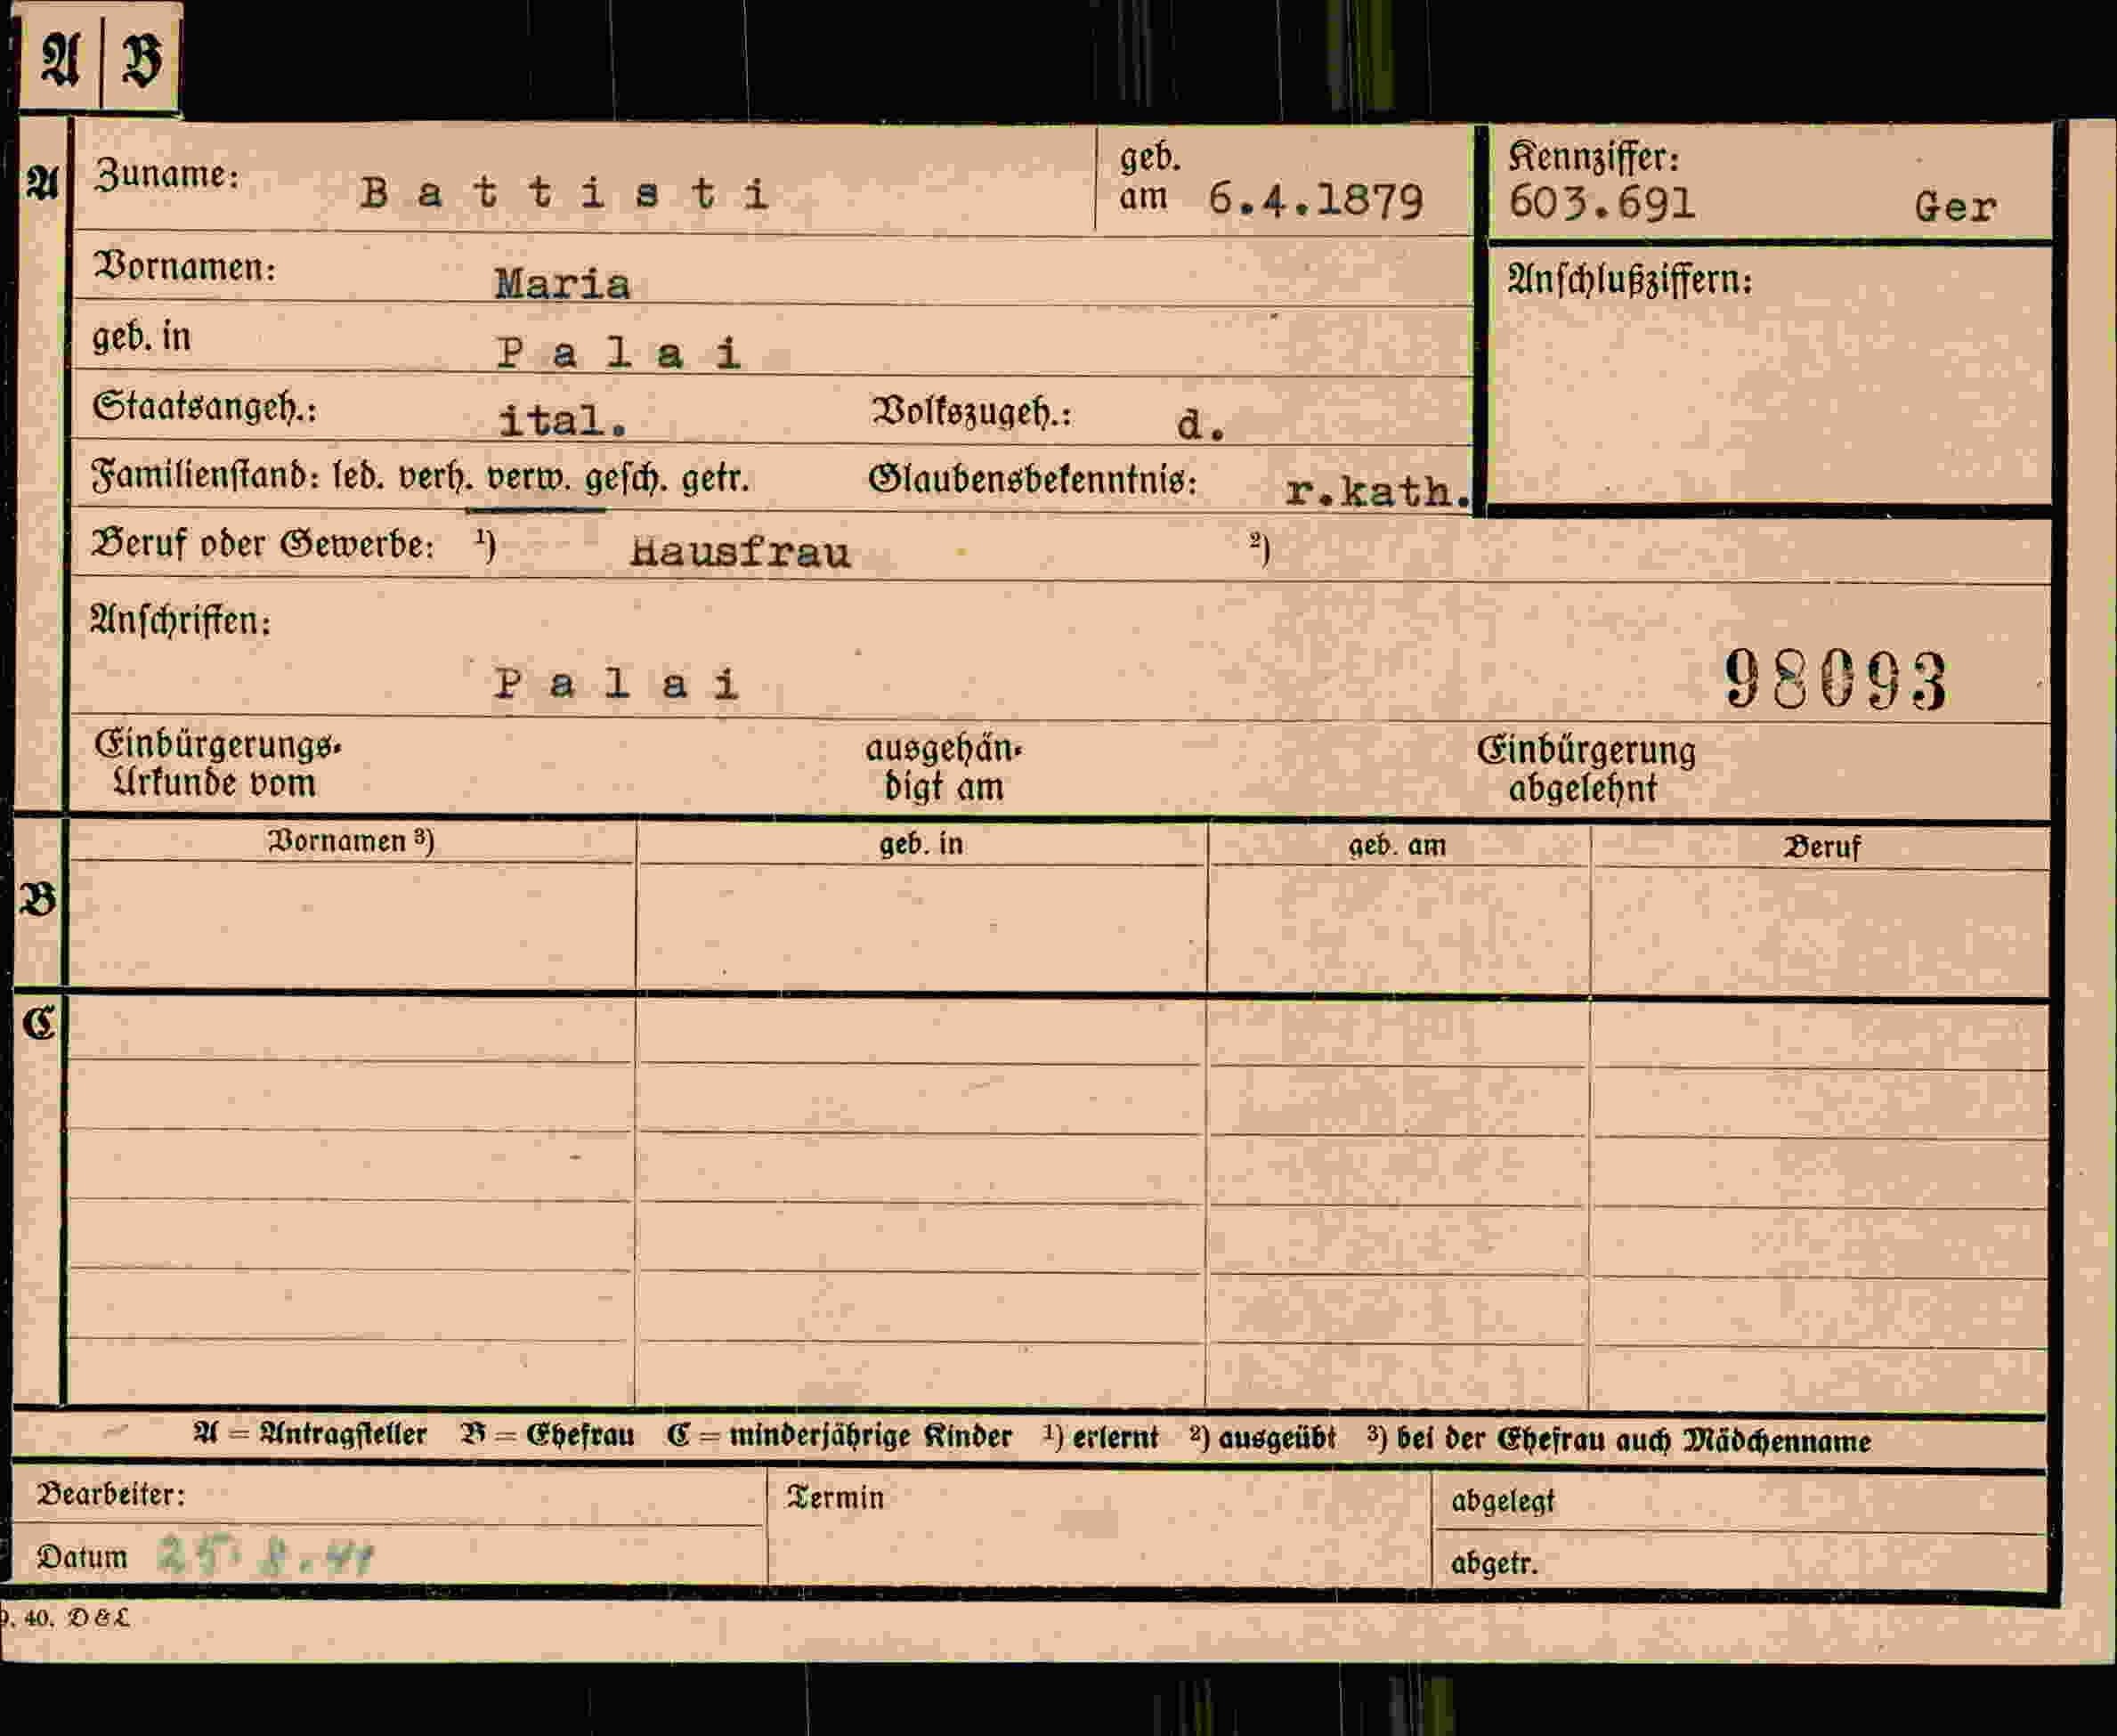 A | B
A Zuname: Battisti geb. am 6.4.1879 Kennziffer: 603.691 Ger
Vornamen: Maria Anschlußziffern:
geb. in Palai
Staatsangeh.: ital. Volkszugeh.: d.
Familienstand: led. verh. verw. gesch. getr. Glaubensbekenntnis: r.kath.
Beruf oder Gewerbe: ¹) Hausfrau ²)
Anschriften:
Palai 98093
Einbürgerungs- ausgehän- Einbürgerung
Urkunde vom digt am abgelehnt
Vornamen ³) geb. in geb. am Beruf
B
C
A = Antragsteller B = Ehefrau C = minderjährige Kinder ¹) erlernt ²) ausgeübt ³) bei der Ehefrau auch Mädchenname
Bearbeiter: Termin abgelegt
Datum 25.8.41 abgetr.
40. D & L